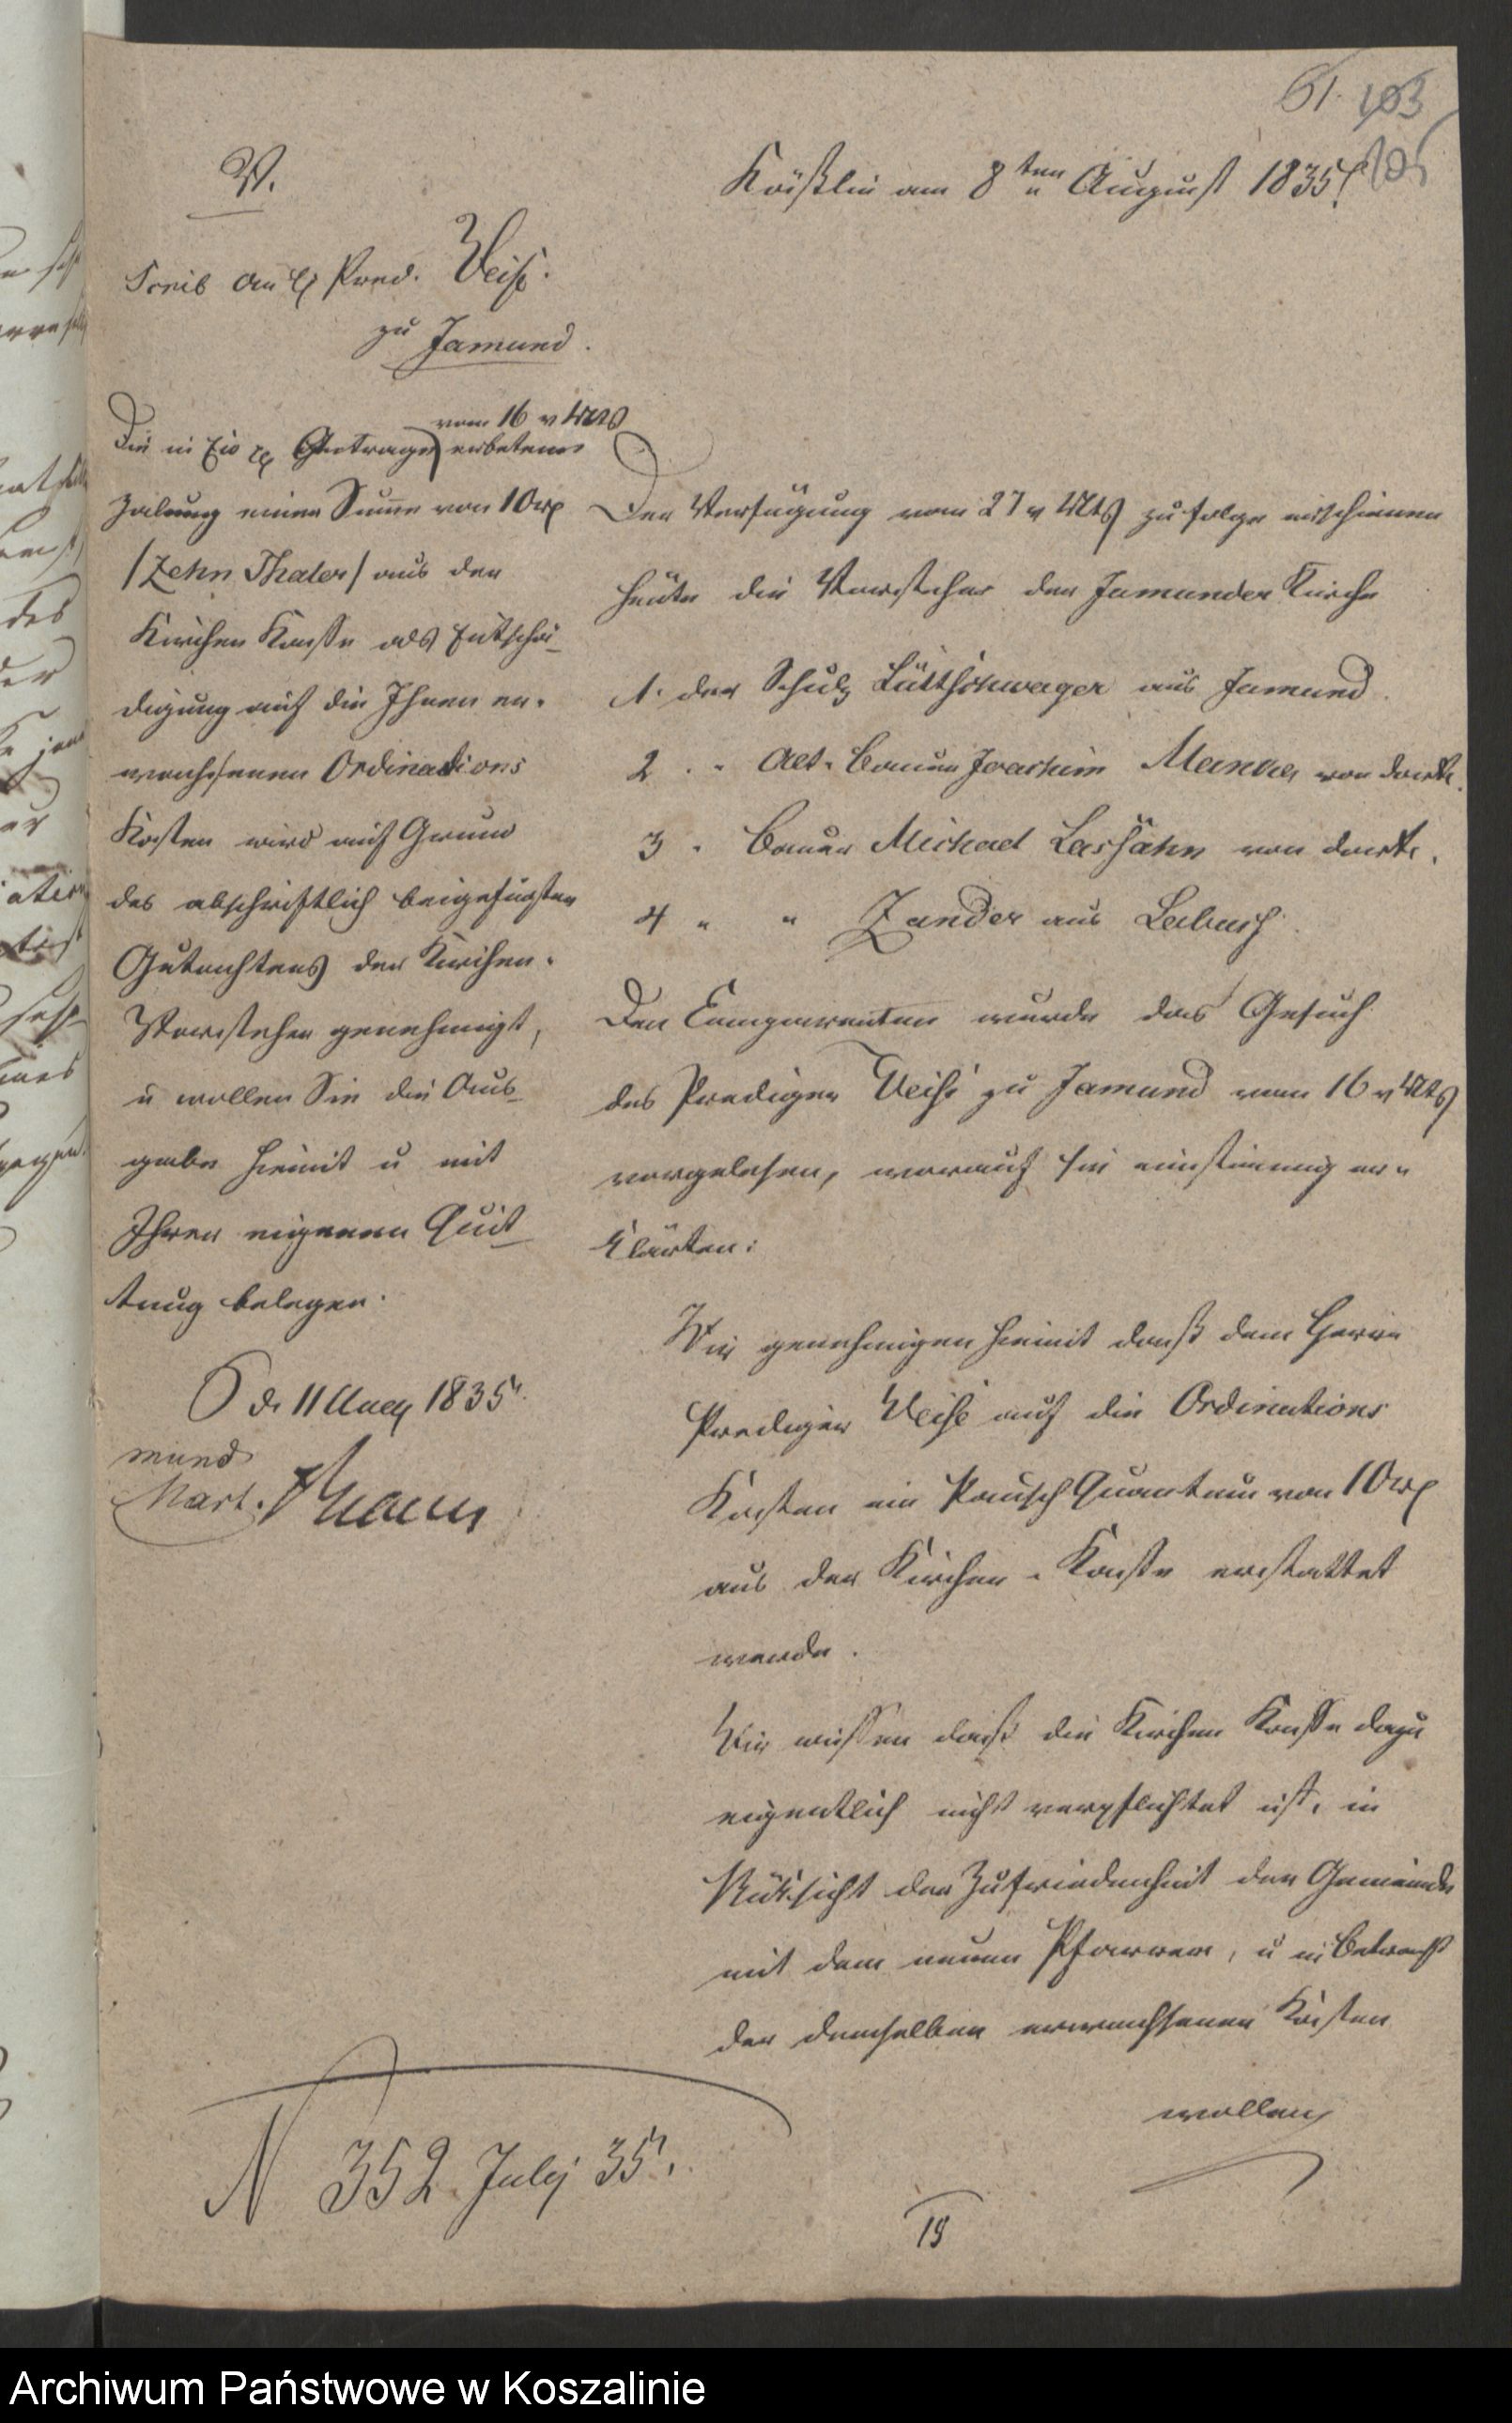 61. 103
105
V.
Cöslin am 8ten August 1835.
Scrib an H Pred. Weiß.
zu Jamund.
vom 16 v Mts
Die in Ew p Antrage erbetene
Zalung einer Sume von 10 rp
/Zehn Thaler/ aus der
Kirchen Kasse als Entschä-
digung auf die Ihnen er-
wachsenen Ordinations
Kosten wird auf Grund
des abschriftlich beigefügten
Gutachtens der Kirchen-
Vorsteher genehmigt,
u wollen Sie die Aus-
gabe hiemit u mit
Ihrer eigenen Quit-
tung belegen.
C d. 11 Aug 1835.
mund
Mart.
Der Verfügung vom 27 v Mts zufolge erschienen
heute die Vorsteher der Jamunder Kirche
1. der Schulz Lüttschwager aus Jamund.
2 . " Alt-Bauer Joachim Manke von dort.
3 " Bauer Michael Lassahn von dort.
4 " " Zander aus Labus
Den Comparenten wurde das Gesuch
des Prediger Weiß zu Jamund vom 16 v Mts
vorgelesen, worauf sie einstimmig er-
klärten:
Wir genehmigen hiemit daß dem Herrn
Prediger Weiß auf die Ordinations
Kosten ein Pausch Quantum von 10 rp
aus der Kirchen-Kasse erstattet
werde.
Wir wissen daß die Kirchen Kasse dazu
eigentlich nicht verpflichtet ist, in
Rücksicht der Zufriedenheit der Gemeinde
mit dem neuen Pfarrer, u in Betracht
der demselben erwachsenen Kosten
wollen
N 352 July 35.
19
Archiwum Państwowe w Koszalinie